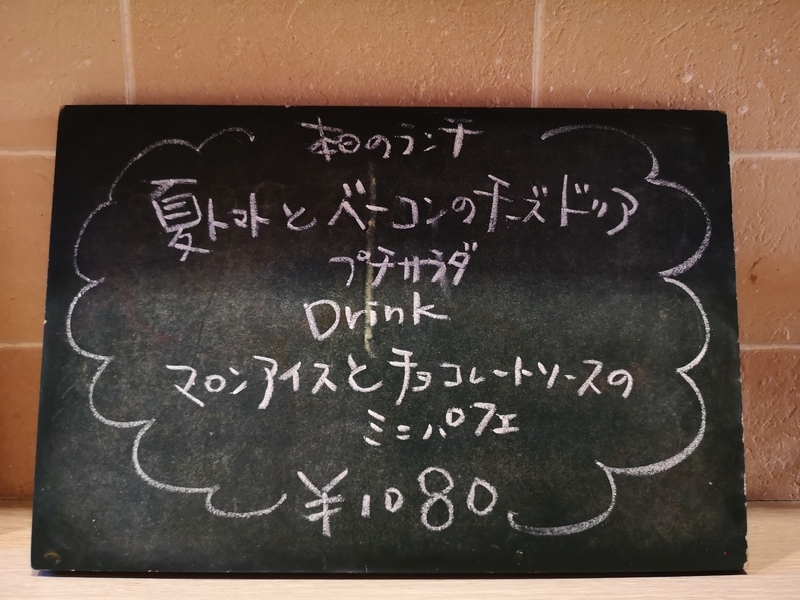 本日のランチ
夏トマトとベーコンのチーズドリア
プチサラダ
Drink
マロンアイスとチョコレートソースの
ミニパフェ
¥1080